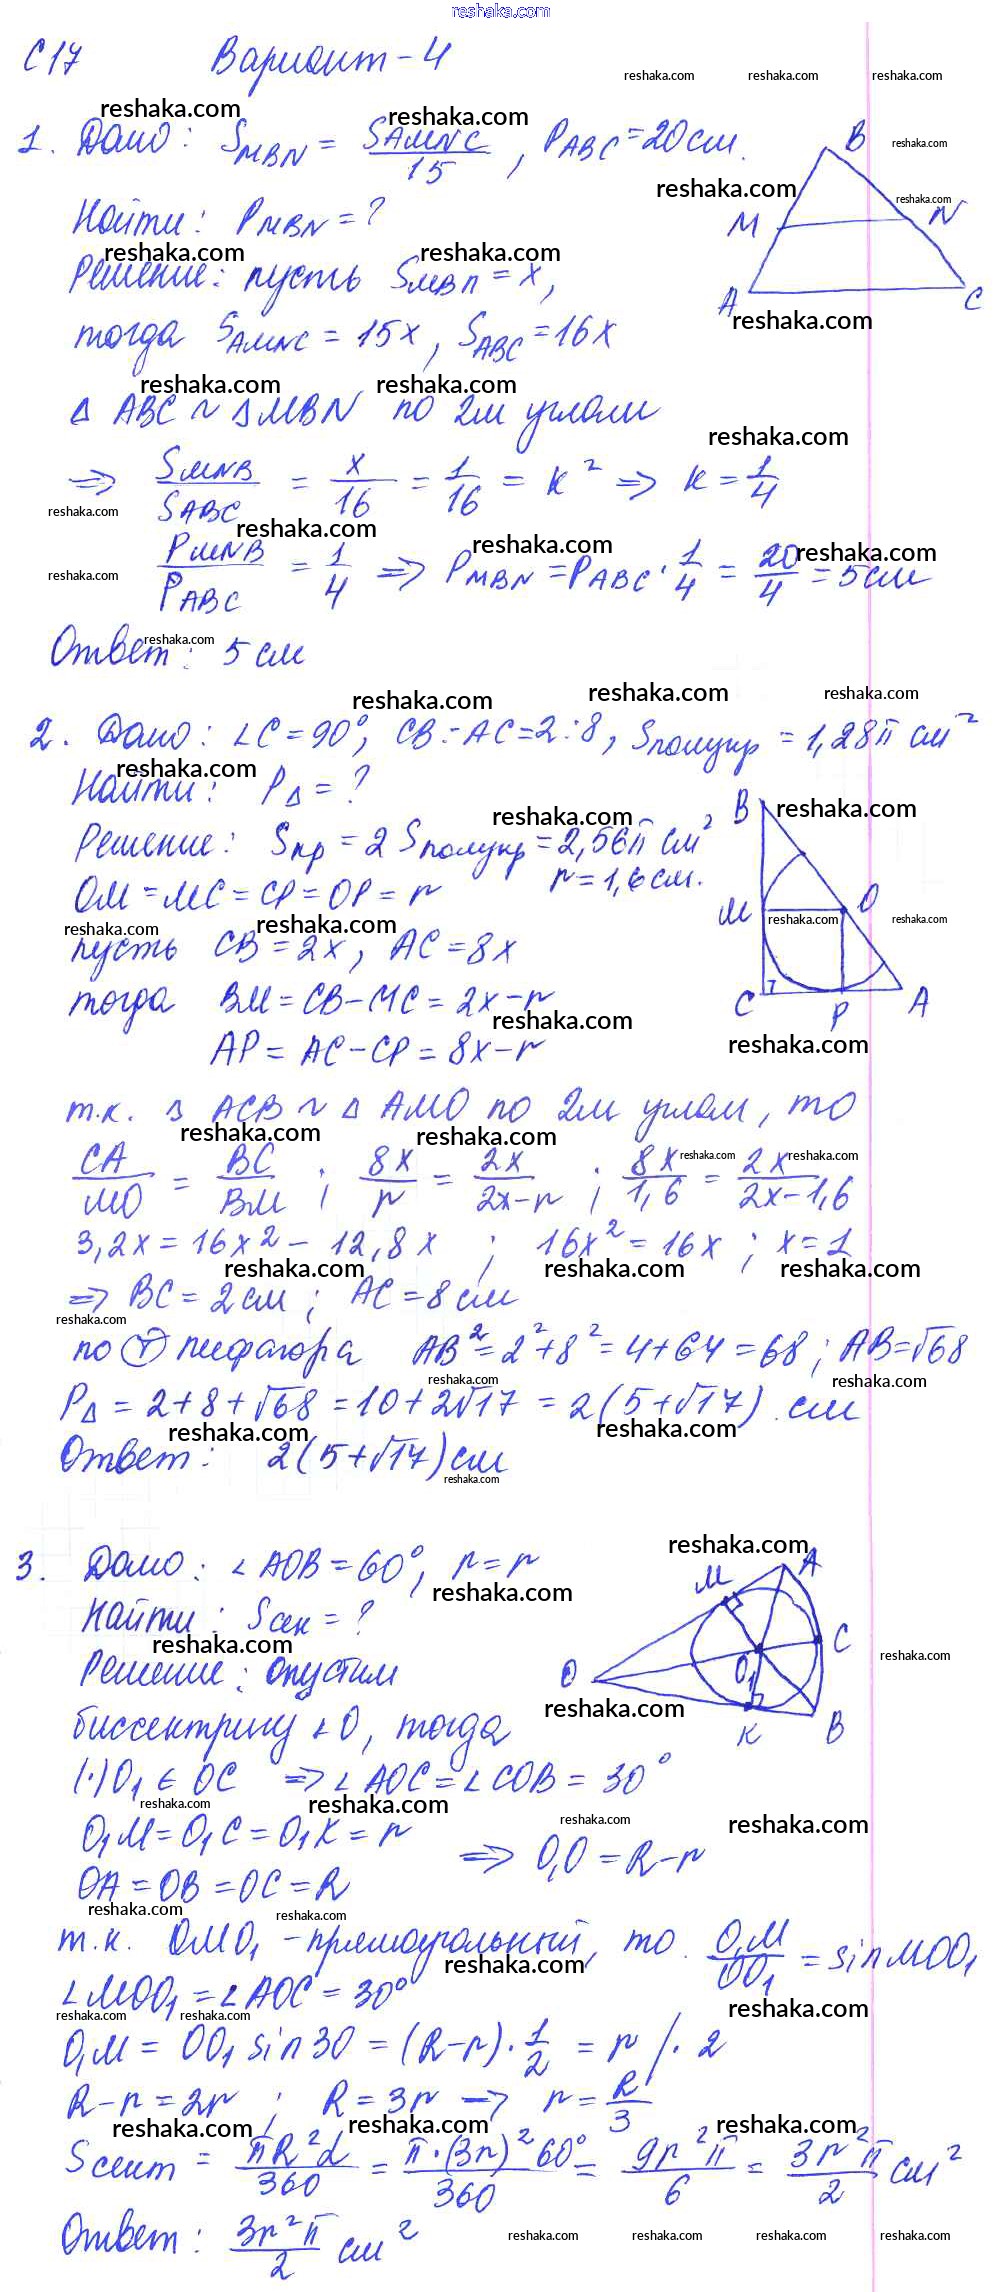 reshaka.com
С17 Вариант-4
1. Дано: S_MBN = S_AMNC / 15, P_ABC = 20 см.
Найти: P_MBN = ?
Решение: пусть S_MBN = x,
тогда S_AMNC = 15x, S_ABC = 16x
Δ ABC ~ Δ MBN по 2м углам
=> S_MNB / S_ABC = x / 16 = 1/16 = k² => k = 1/4
P_MNB / P_ABC = 1/4 => P_MBN = P_ABC · 1/4 = 20/4 = 5 см
Ответ: 5 см
B
M N
A C
2. Дано: ∠C = 90°, CB:AC = 2:8, S_полукр = 1,28π см²
Найти: P_Δ = ?
Решение: S_кр = 2 S_полукр = 2,56π см²
r = 1,6 см.
OM = MC = CP = OP = r
пусть CB = 2x, AC = 8x
тогда BM = CB - MC = 2x - r
AP = AC - CP = 8x - r
B
M O
C P A
т.к. Δ ACB ~ Δ AMO по 2м углам, то
CA / MO = BC / BM ; 8x / r = 2x / (2x - r) ; 8x / 1,6 = 2x / (2x - 1,6)
3,2x = 16x² - 12,8x ; 16x² = 16x ; x = 1
=> BC = 2 см ; AC = 8 см
по Т Пифагора AB² = 2² + 8² = 4 + 64 = 68 ; AB = √68
P_Δ = 2 + 8 + √68 = 10 + 2√17 = 2(5 + √17) см
Ответ: 2(5 + √17) см
3. Дано: ∠AOB = 60°, r = r
Найти: S_сек = ?
Решение: Опустим
биссектрису ∠O, тогда
(·) O₁ ∈ OC => ∠AOC = ∠COB = 30°
O₁M = O₁C = O₁K = r
OA = OB = OC = R
=> O₁O = R - r
M A
C
O O₁
K B
т.к. OMO₁ - прямоугольный, то O₁M / OO₁ = sin MOO₁
∠MOO₁ = ∠AOC = 30°
O₁M = OO₁ sin 30 = (R - r) · 1/2 = r /· 2
R - r = 2r ; R = 3r → r = R/3
S_сект = πR²α / 360 = π·(3r)² 60° / 360 = 9r²π / 6 = 3r²π / 2 см²
Ответ: 3r²π / 2 см²